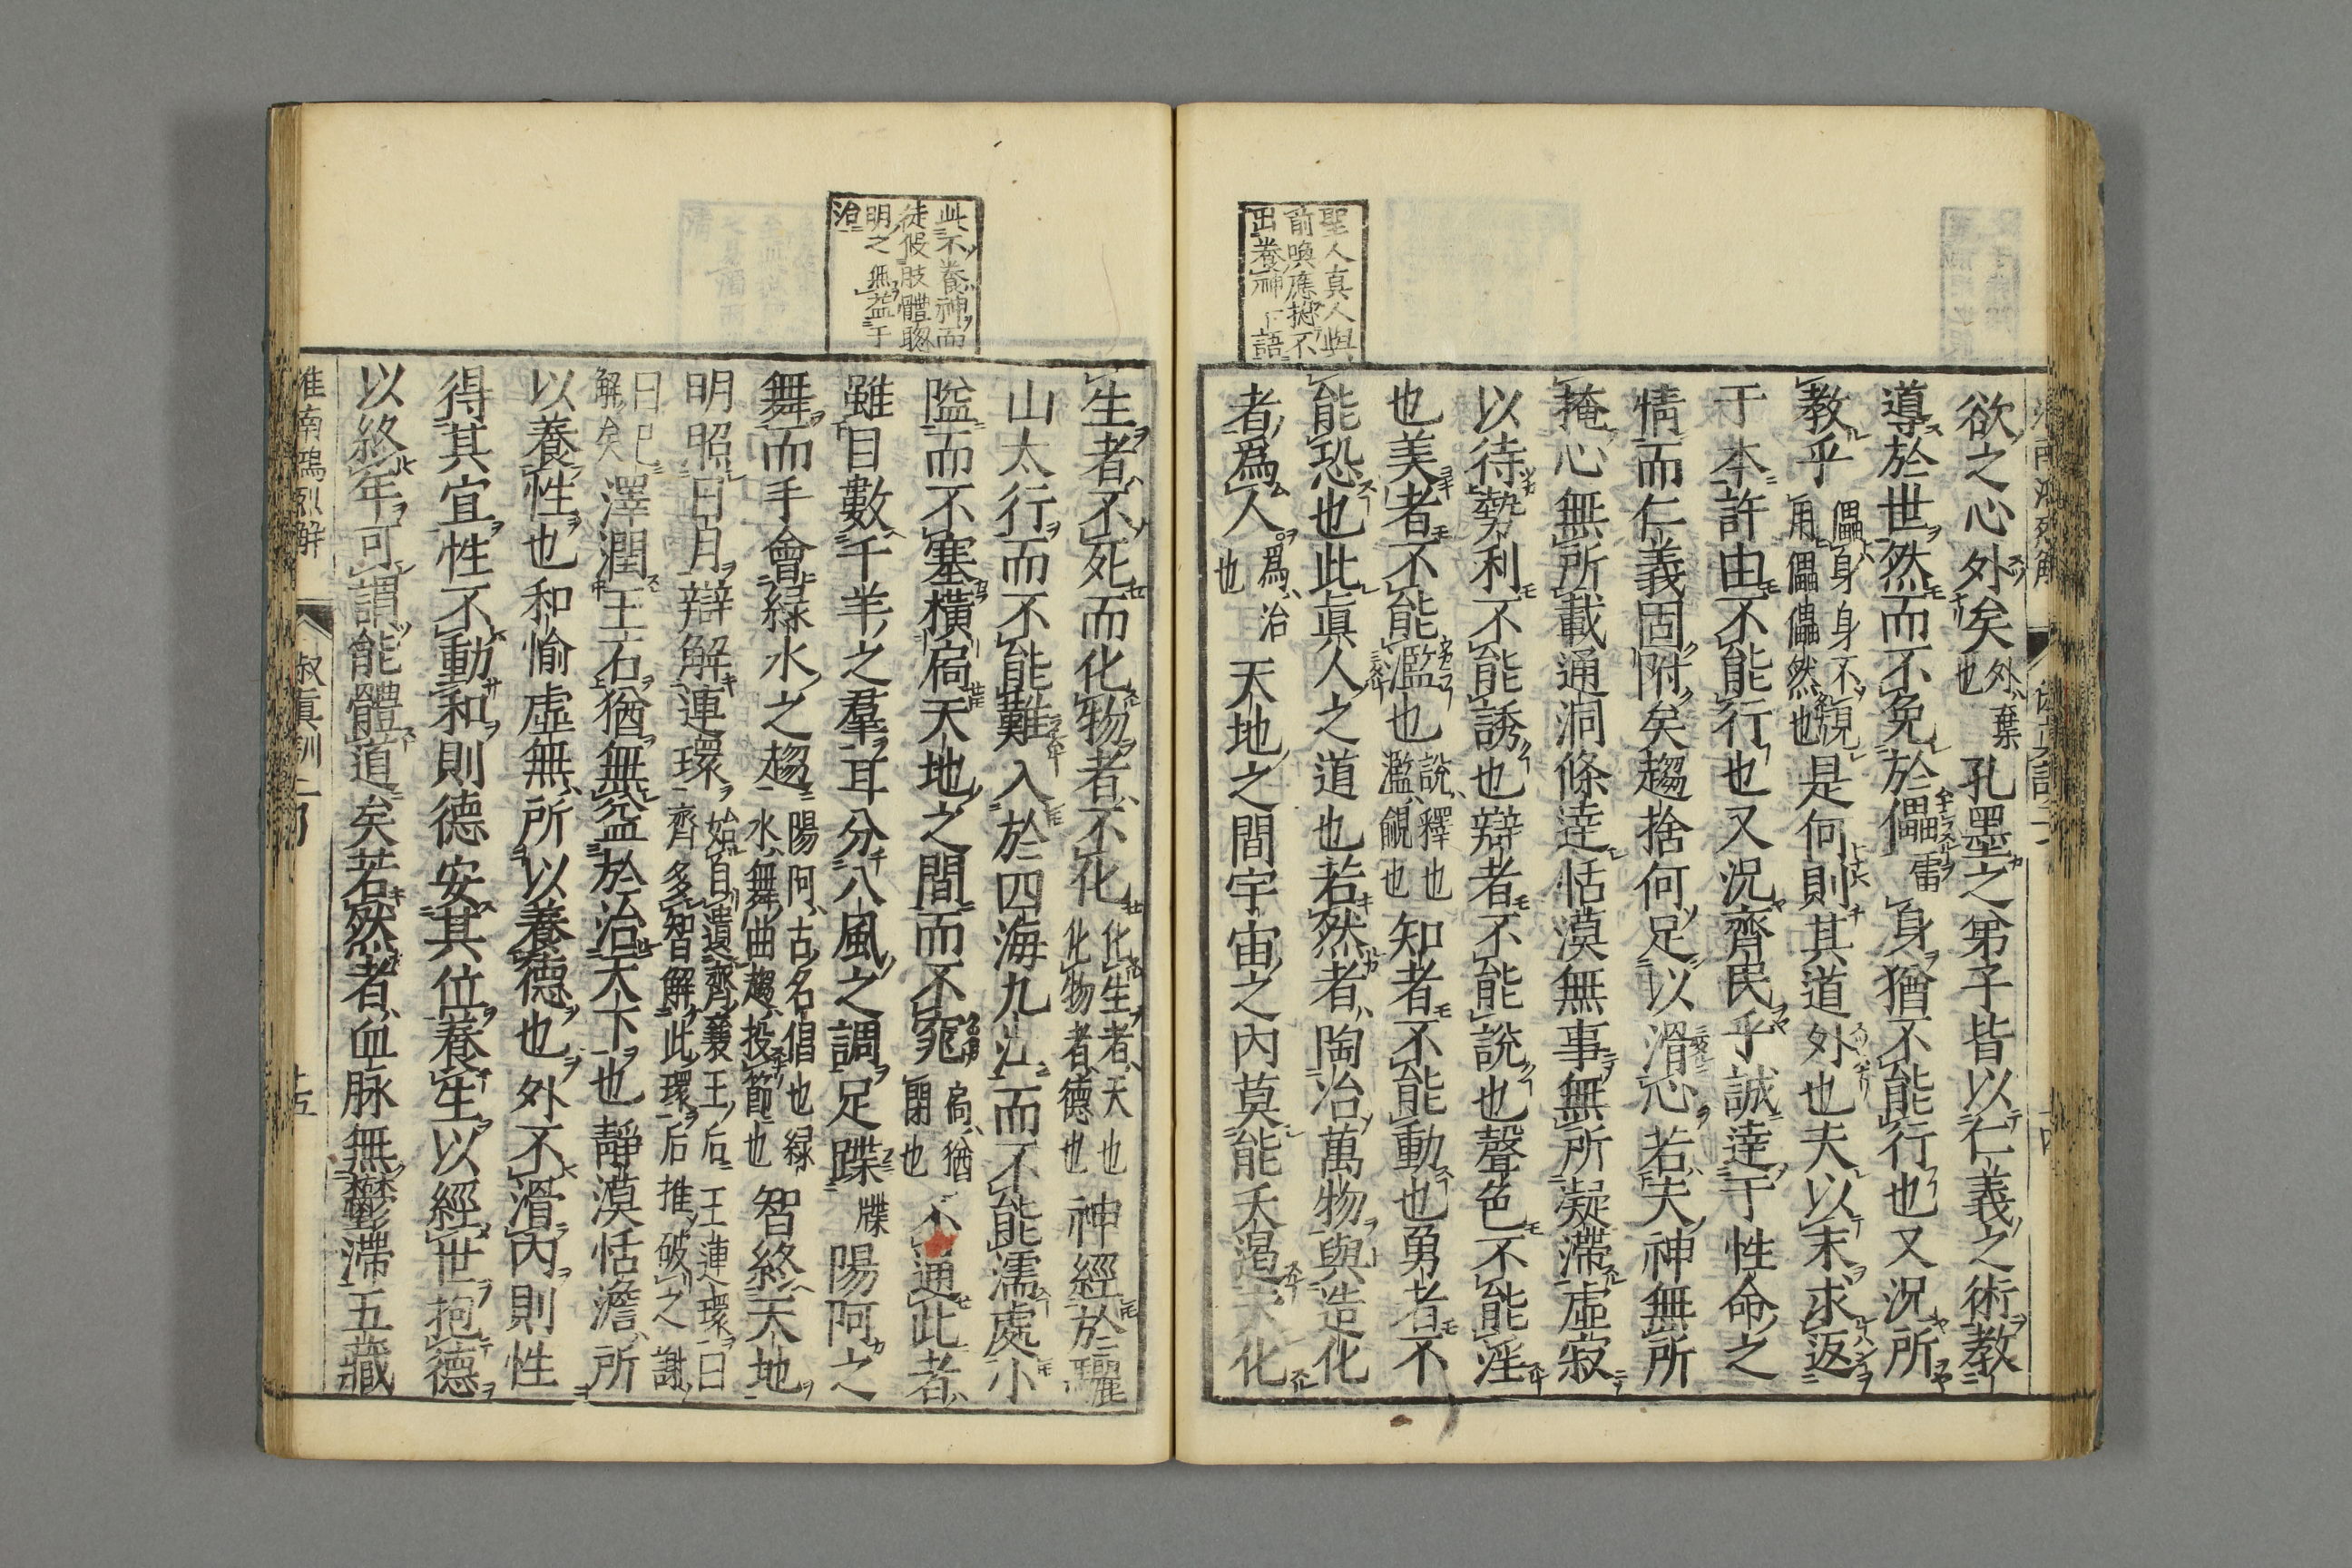 聖人真人與
前喚應摠不
出養神一語
欲之心外矣外棄也孔墨之弟子皆以仁義之術教
導於世然而不免於儡身猶不能行也又況所
教乎儡身身不見用儡儡然也是何則其道外也夫以末求返
于本許由不能行也又況齊民乎誠達于性命之
情而仁義固附矣趨捨何足以滑心若夫神無所
掩心無所載通洞條達恬漠無事無所凝滯虛寂
以待勢利不能誘也辯者不能說也聲色不能淫
也美者不能濫也說釋也濫覦也知者不能動也勇者不
能恐也此真人之道也若然者陶冶萬物與造化
者為人為治也天地之間宇宙之內莫能夭遏夫化
此不養神而
徒假肢體聰
明之無益于
治
生者不死而化物者不化化生者天也化物者德也神經於驪
山太行而不能難入於四海九江而不能濡處小
隘而不塞橫扃天地之間而不窕扃猶閉也不通此者
雖目數千羊之羣耳分八風之調足蹀蹀陽阿之
舞而手會綠水之趨陽阿古名倡也綠水舞曲趨投節也智終天地
明照日月辯解連環始皇遺齊襄王后王連環曰齊多智解此環后推破之謝
曰已解矣澤潤玉石猶無益於治天下也靜漠恬澹所
以養性也和愉虛無所以養德也外不滑內則性
得其宜性不動和則德安其位養生以經世抱德
以終年可謂能體道矣若然者血脉無鬱滯五藏
淮南鴻烈解 俶真訓二 十五